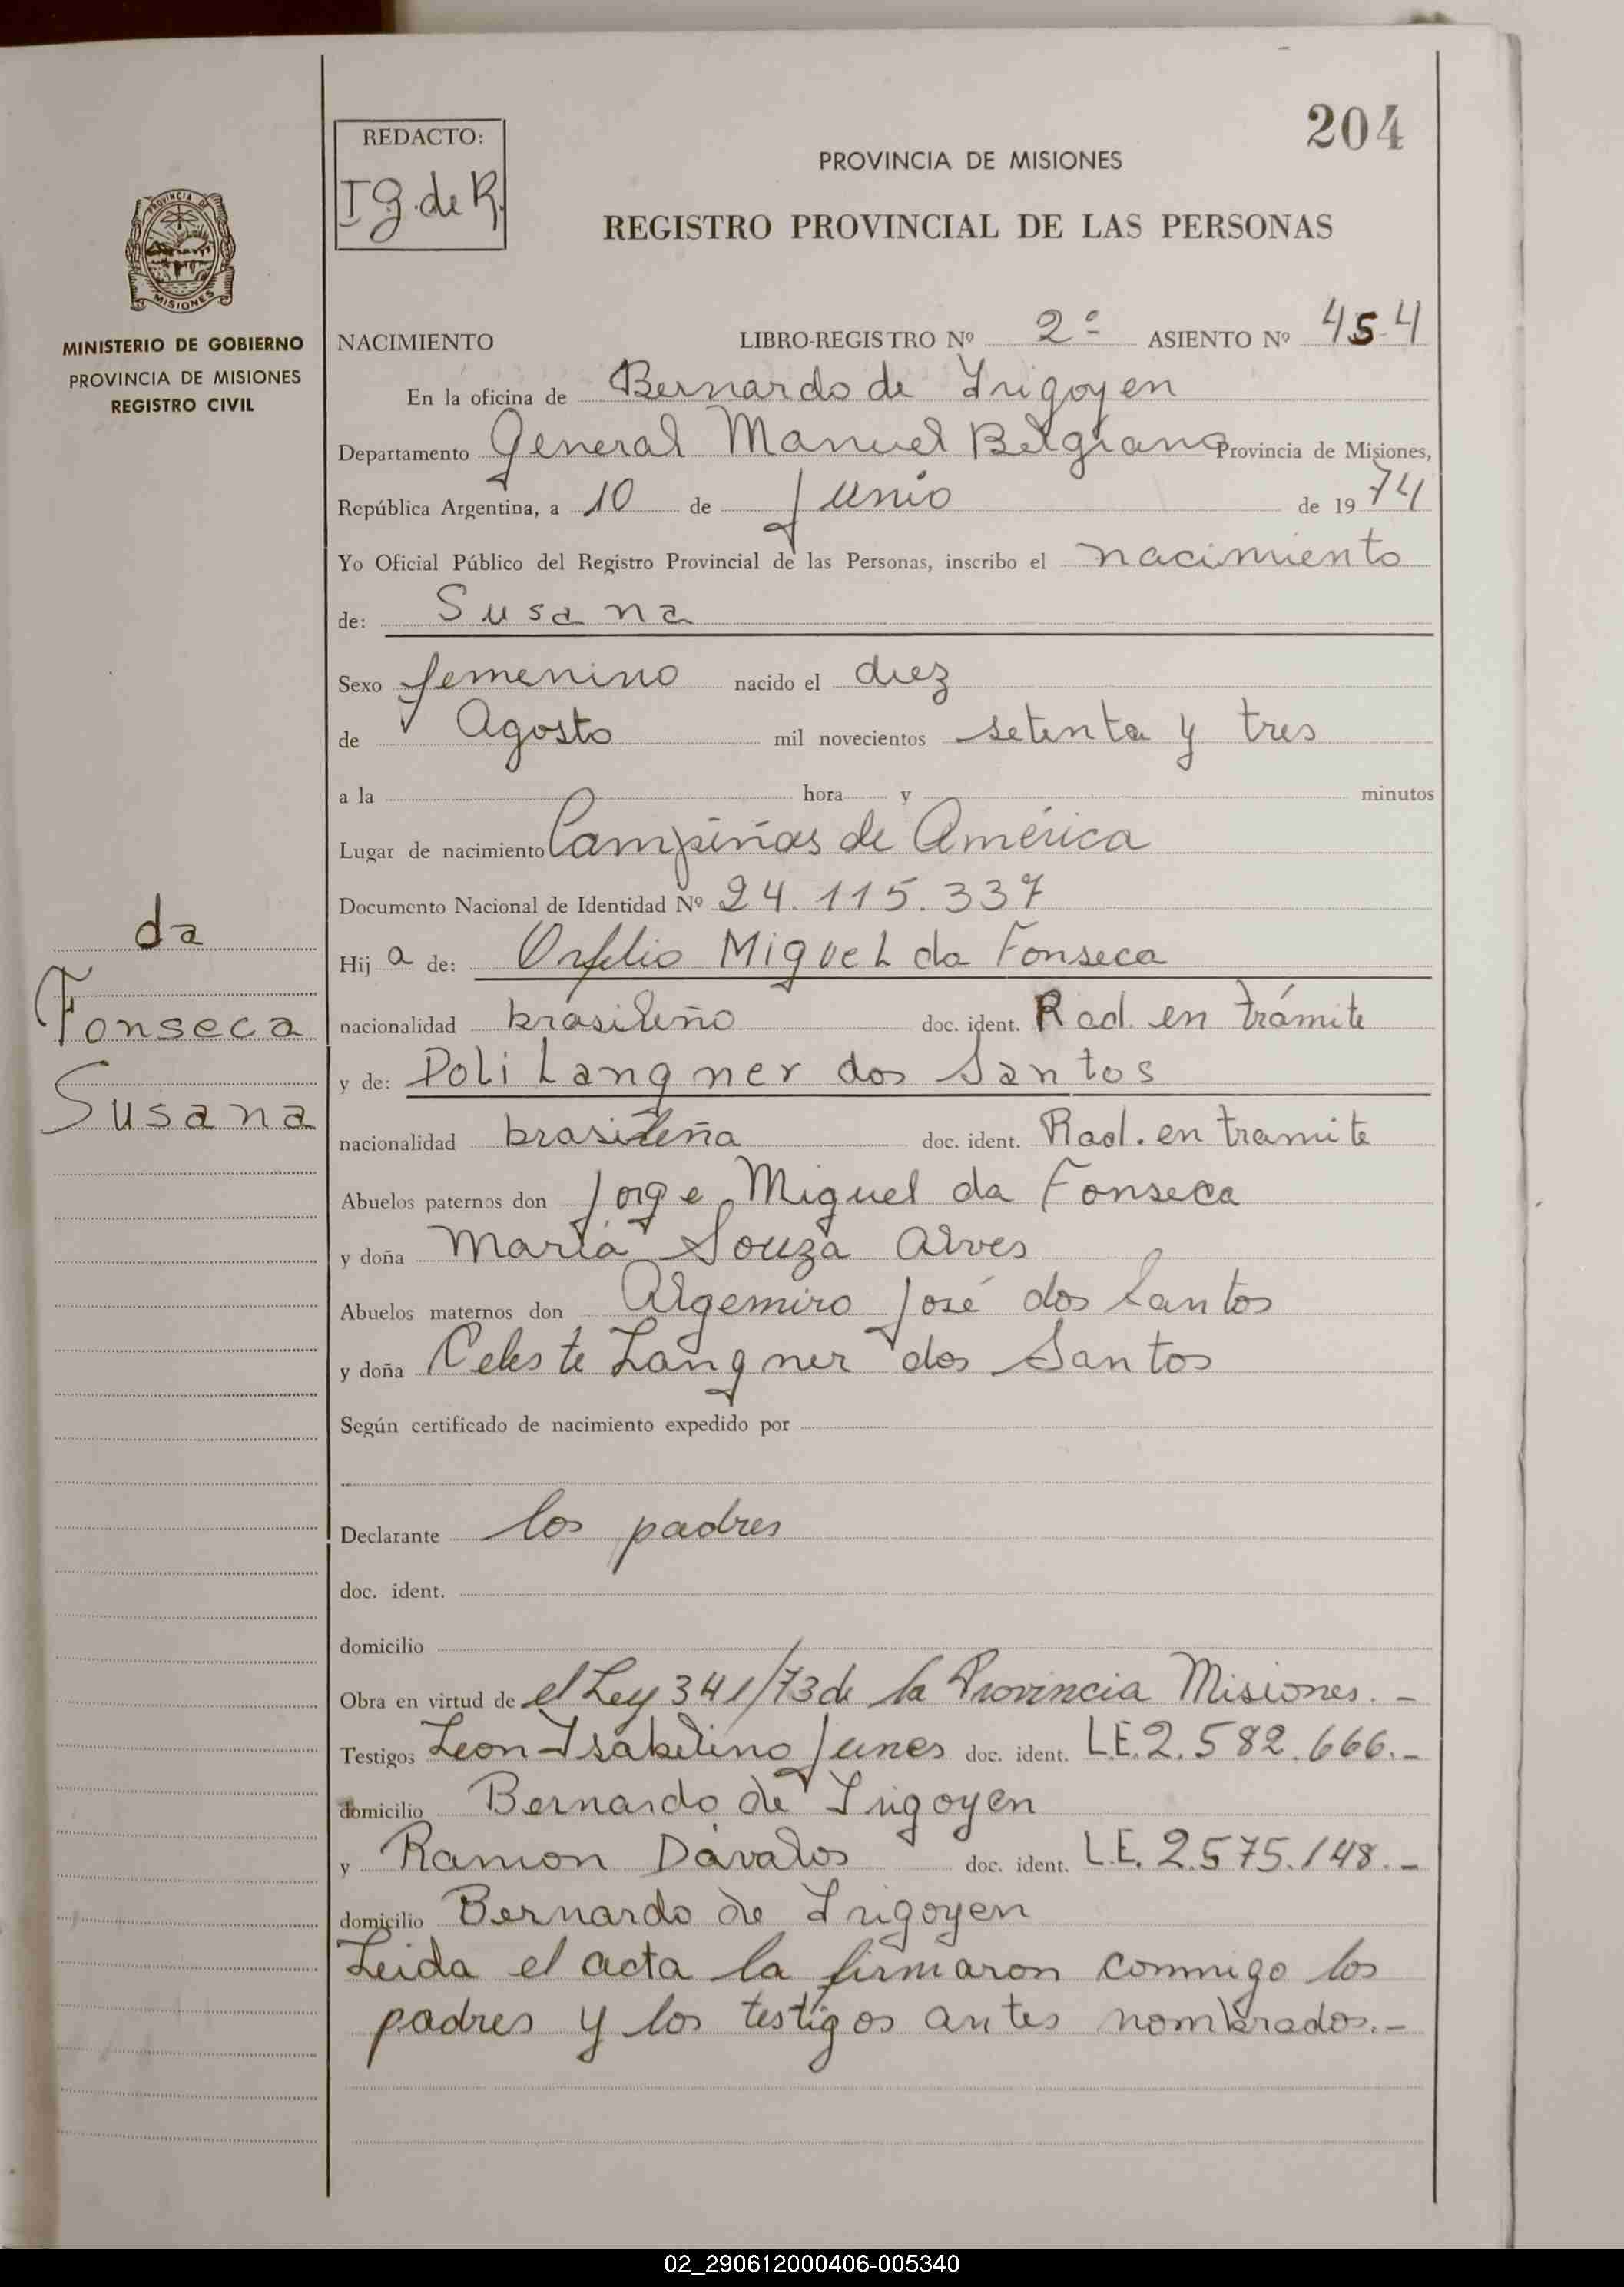 204
REDACTO:
I g. de R.
PROVINCIA DE MISIONES
REGISTRO PROVINCIAL DE LAS PERSONAS
PROVINCIA DE
MISIONES
MINISTERIO DE GOBIERNO
PROVINCIA DE MISIONES
REGISTRO CIVIL
NACIMIENTO LIBRO-REGISTRO Nº 2º ASIENTO Nº 454
En la oficina de Bernardo de Irigoyen
Departamento General Manuel Belgrano Provincia de Misiones,
República Argentina, a 10 de Junio de 1974
Yo Oficial Público del Registro Provincial de las Personas, inscribo el nacimiento
de: Susana
Sexo femenino nacido el diez
de Agosto mil novecientos setenta y tres
a la hora y minutos
Lugar de nacimiento Campiñas de América
Documento Nacional de Identidad Nº 24.115.337
da
Fonseca
Susana
Hija de: Orfelio Miguel da Fonseca
nacionalidad brasileño doc. ident. Rad. en trámite
y de: Poli Langner dos Santos
nacionalidad brasileña doc. ident. Rad. en tramite
Abuelos paternos don Jorge Miguel da Fonseca
y doña María Souza Alves
Abuelos maternos don Algemiro José dos Santos
y doña Celeste Langner dos Santos
Según certificado de nacimiento expedido por
Declarante los padres
doc. ident.
domicilio
Obra en virtud de el Ley 341/73 de la Provincia Misiones. -
Testigos Leon Isabelino Junes doc. ident. L.E. 2.582.666.-
domicilio Bernardo de Irigoyen
y Ramon Dávalos doc. ident. L.E. 2.575.148.-
domicilio Bernardo de Irigoyen
Leida el acta la firmaron conmigo los
padres y los testigos antes nombrados.-
02_290612000406-005340